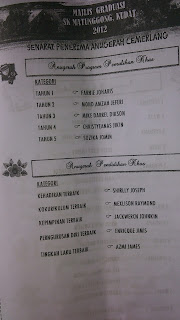 MAJLIS GRADUASI
SK MATUNGGONG, KUDAT
2012
SENARAI PENERIMA ANUGERAH CEMERLANG
Anugerah Program Pendidikan Khas
KATEGORI
TAHUN 1 JOHARIS
TAHUN 2 MOHD AIZZAN JEFERI
TAHUN 3 MIKE DARREL
TAHUN 4 CHRISTYRANUS JIKIN
TAHUN 5 SOZIKA JOMIN
Anugerah Pendidikan Khas
KATEGORI
KEHADIRAN TERBAIK SHIRLLY JOSEPH
KOKURIKULUM TERBAIK NEKLISON RAYMOND
KEPIMPINAN TERBAIK JACKWEREN JOHNKIN
PENGURUSAN DIRI TERBAIK ENRICQUE JANIS
TINGKAH LAKU TERBAIK AZMI JAMES